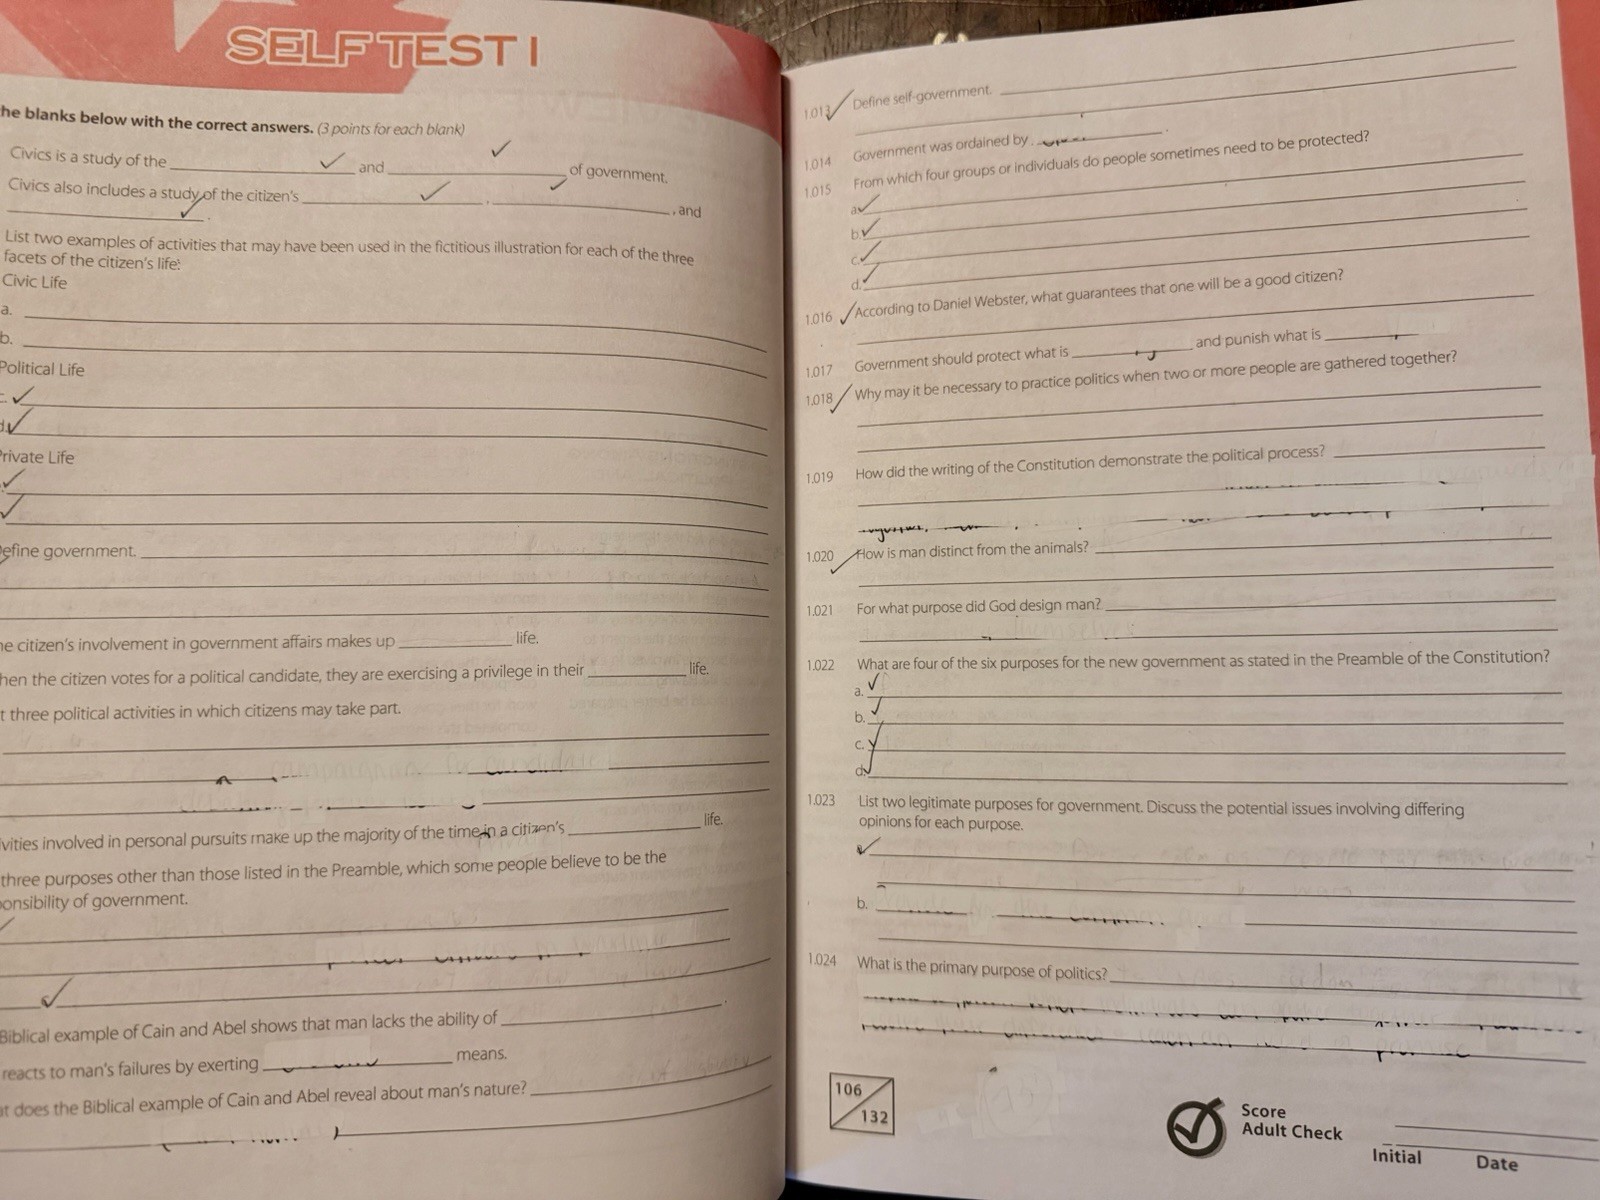 SELF TEST 1
he blanks below with the correct answers. (3 points for each blank)
Civics is a study of the ____ and ____ of government.
Civics also includes a study of the citizen's ____, ____, and
____.
List two examples of activities that may have been used in the fictitious illustration for each of the three
facets of the citizen's life:
Civic Life
a.
b.
Political Life
c.
d.
Private Life
efine government.
he citizen's involvement in government affairs makes up ____ life.
hen the citizen votes for a political candidate, they are exercising a privilege in their ____ life.
t three political activities in which citizens may take part.
vities involved in personal pursuits make up the majority of the time in a citizen's ____ life.
three purposes other than those listed in the Preamble, which some people believe to be the
onsibility of government.
Biblical example of Cain and Abel shows that man lacks the ability of ____.
reacts to man's failures by exerting ____ means.
at does the Biblical example of Cain and Abel reveal about man's nature?
1.013 Define self-government.
1.014 Government was ordained by ____.
1.015 From which four groups or individuals do people sometimes need to be protected?
a.
b.
c.
d.
1.016 According to Daniel Webster, what guarantees that one will be a good citizen?
1.017 Government should protect what is ____ and punish what is ____
1.018 Why may it be necessary to practice politics when two or more people are gathered together?
1.019 How did the writing of the Constitution demonstrate the political process?
1.020 How is man distinct from the animals?
1.021 For what purpose did God design man?
1.022 What are four of the six purposes for the new government as stated in the Preamble of the Constitution?
a.
b.
c.
d.
1.023 List two legitimate purposes for government. Discuss the potential issues involving differing
opinions for each purpose.
b.
1.024 What is the primary purpose of politics?
106
132
Score
Adult Check
Initial Date